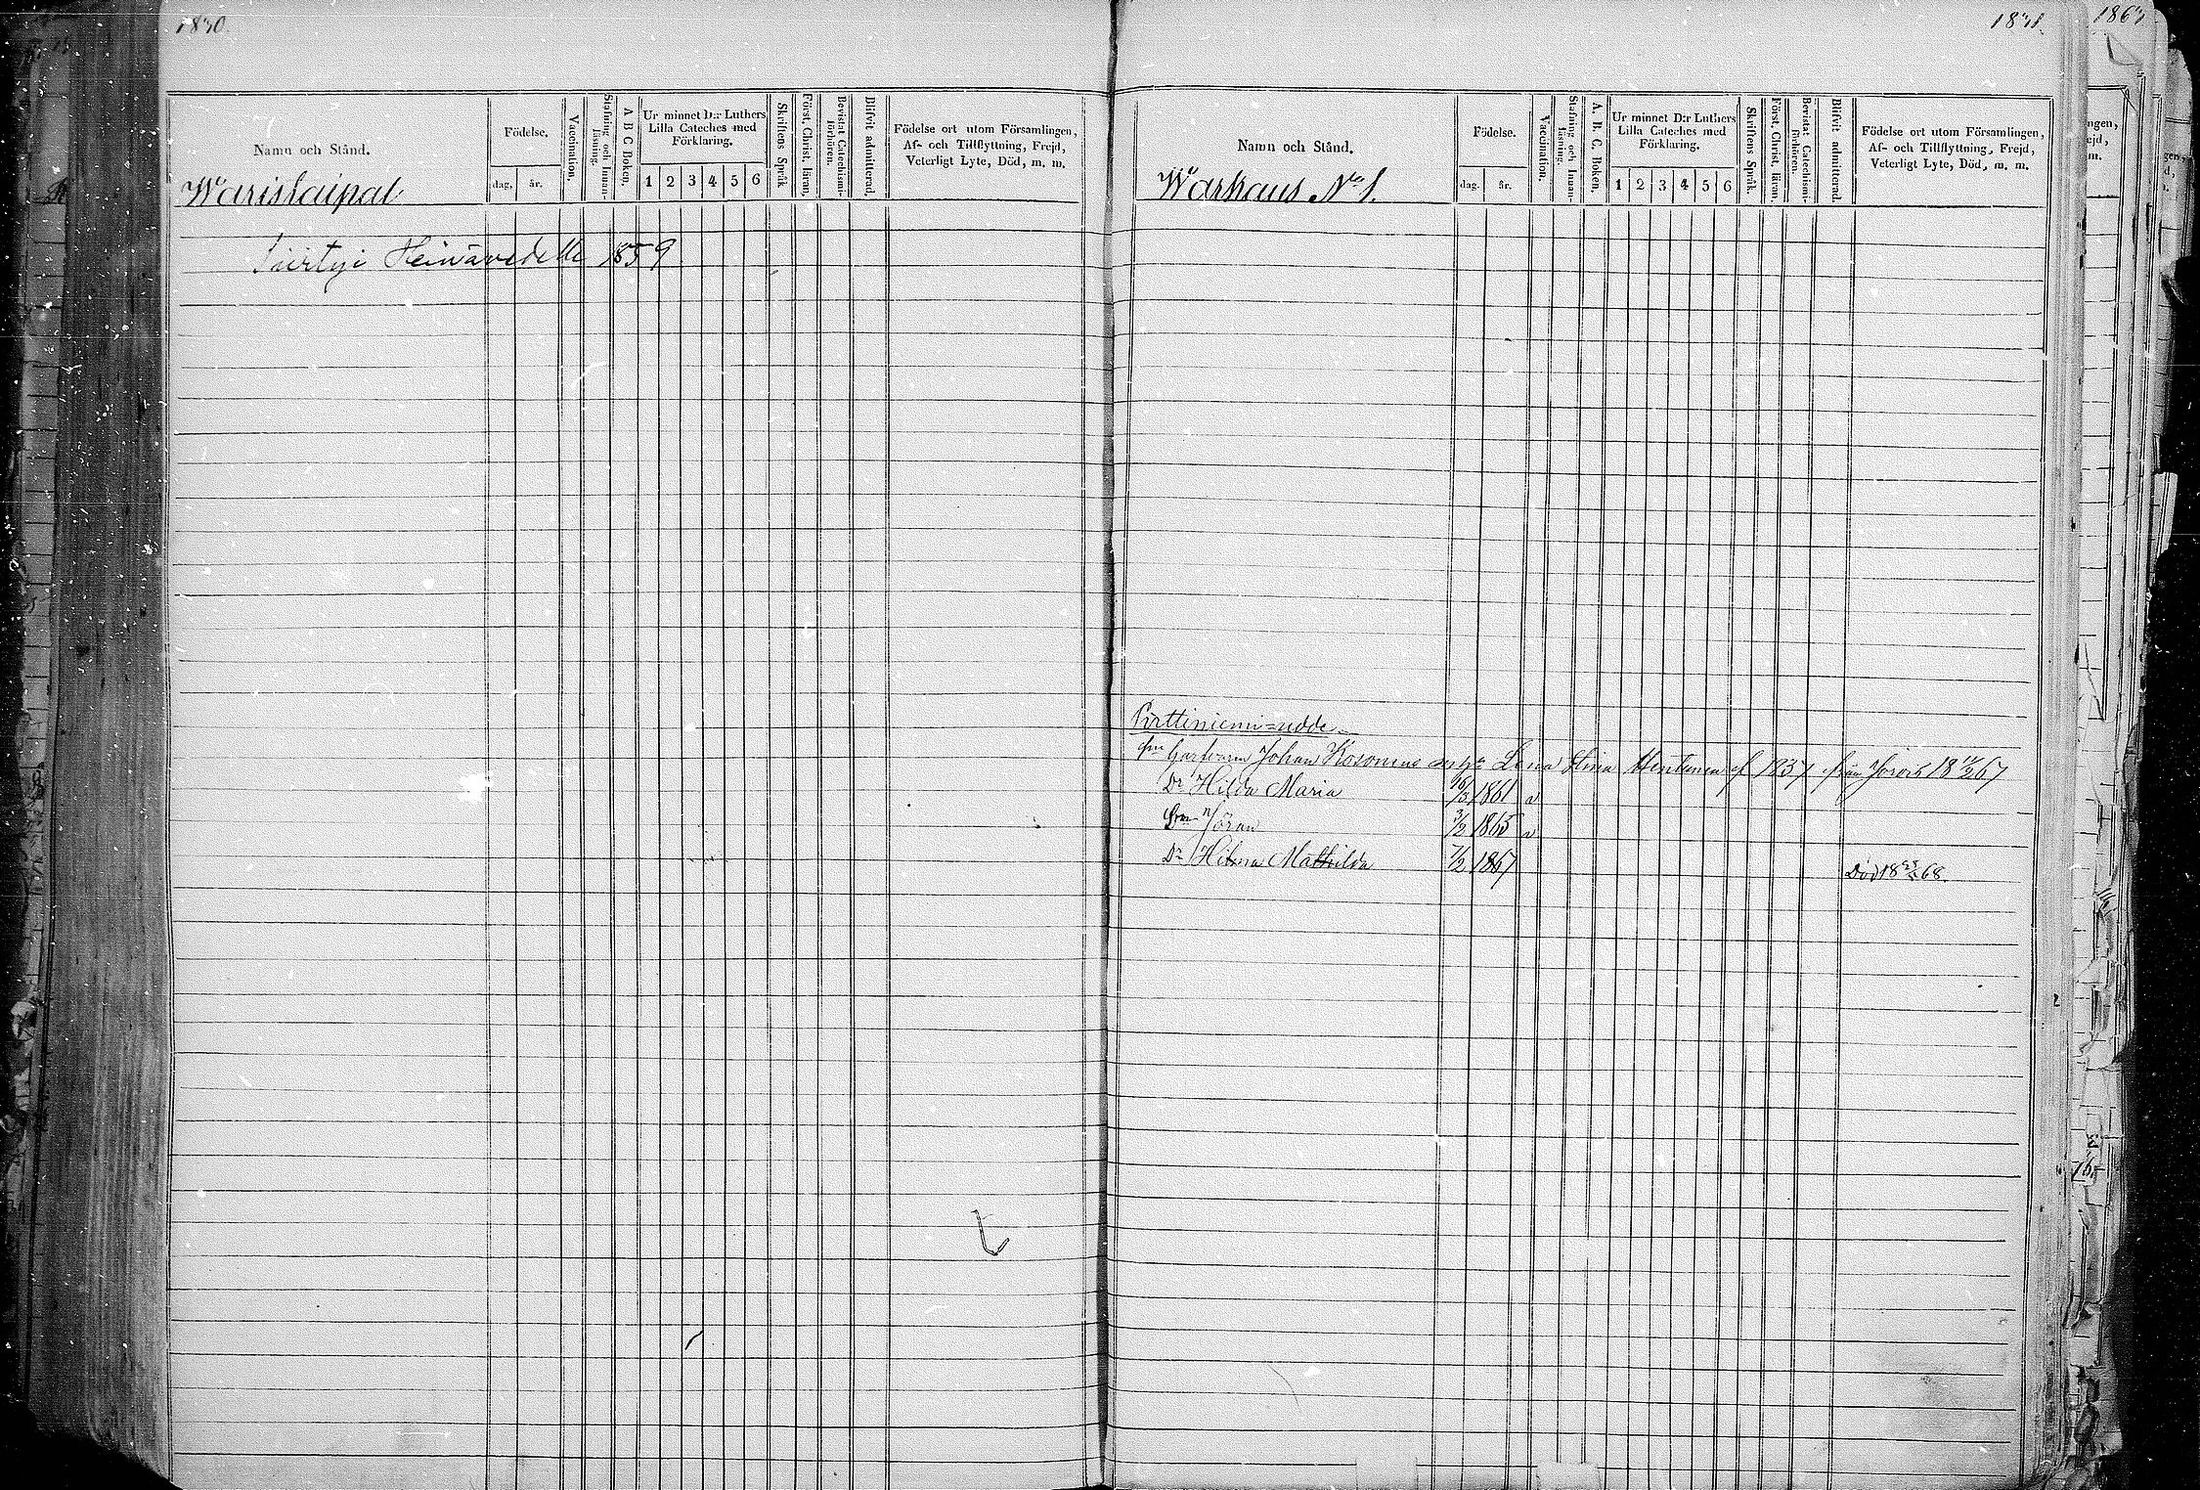 1830.
Namn och Stånd.
Födelse.
dag, år.
Vaccination.
Stafning och Innan-läsning.
A B C Boken.
Ur minnet D:r Luthers
Lilla Cateches med
Förklaring.
1 2 3 4 5 6
Skriftens Språk
Först. Christ. läran.
Bevistat Catechismi-förhören.
Blifvit admitterad.
Födelse ort utom Församlingen,
Af- och Tillflyttning, Frejd,
Veterligt Lyte, Död, m. m.
Waristaipal
Siirtyi Heinävedelle 1859
1831.
Namn och Stånd.
Födelse.
dag. år.
Vaccination.
Stafning och Innan-läsning.
A. B. C. Boken.
Ur minnet D:r Luthers
Lilla Cateches med
Förklaring.
1 2 3 4 5 6
Skriftens Språk.
Först. Christ. läran.
Bevistat Catechismi-förhören.
Blifvit admitterad.
Födelse ort utom Församlingen,
Af- och Tillflyttning, Frejd,
Veterligt Lyte, Död, m. m.
Warkaus No 1.
Pirttiniemi=udde
Johan Kosonens Lena Stina af 1837 från Jorois
Dr Hilda Maria 16/3 1861 v
Son Jöran 3/2 1865 v
Dr Hilma Mathilda 7/2 1867 Död
1863